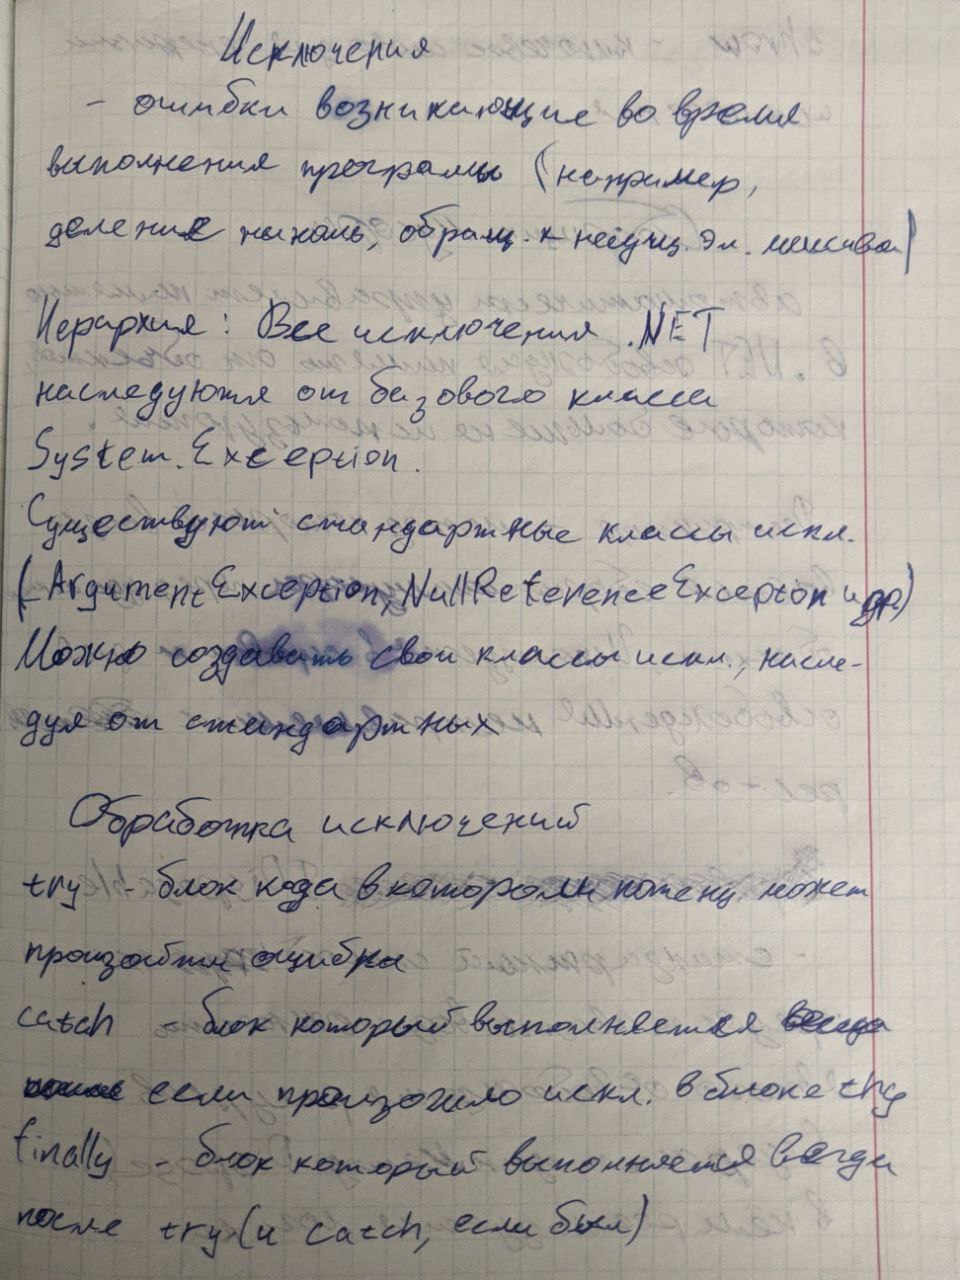 Исключения
- ошибки возникающие во время
выполнения програмы (например,
деления на ноль, обращ. к несущ. эл. массива)
Иерархия: Все исключения .NET
наследуются от базового класса
System.Exception.
Существуют стандартные классы искл.
(ArgumentException, NullReferenceException и др)
Можно создавать свои классы искл., насле-
дуя от стандартных
Обработка исключений
try - блок кода в котором потенц. может
произойти ошибка
catch - блок который выполняется
если произошло искл. в блоке try
finally - блок который выполняется всегда
после try (и catch, если был)